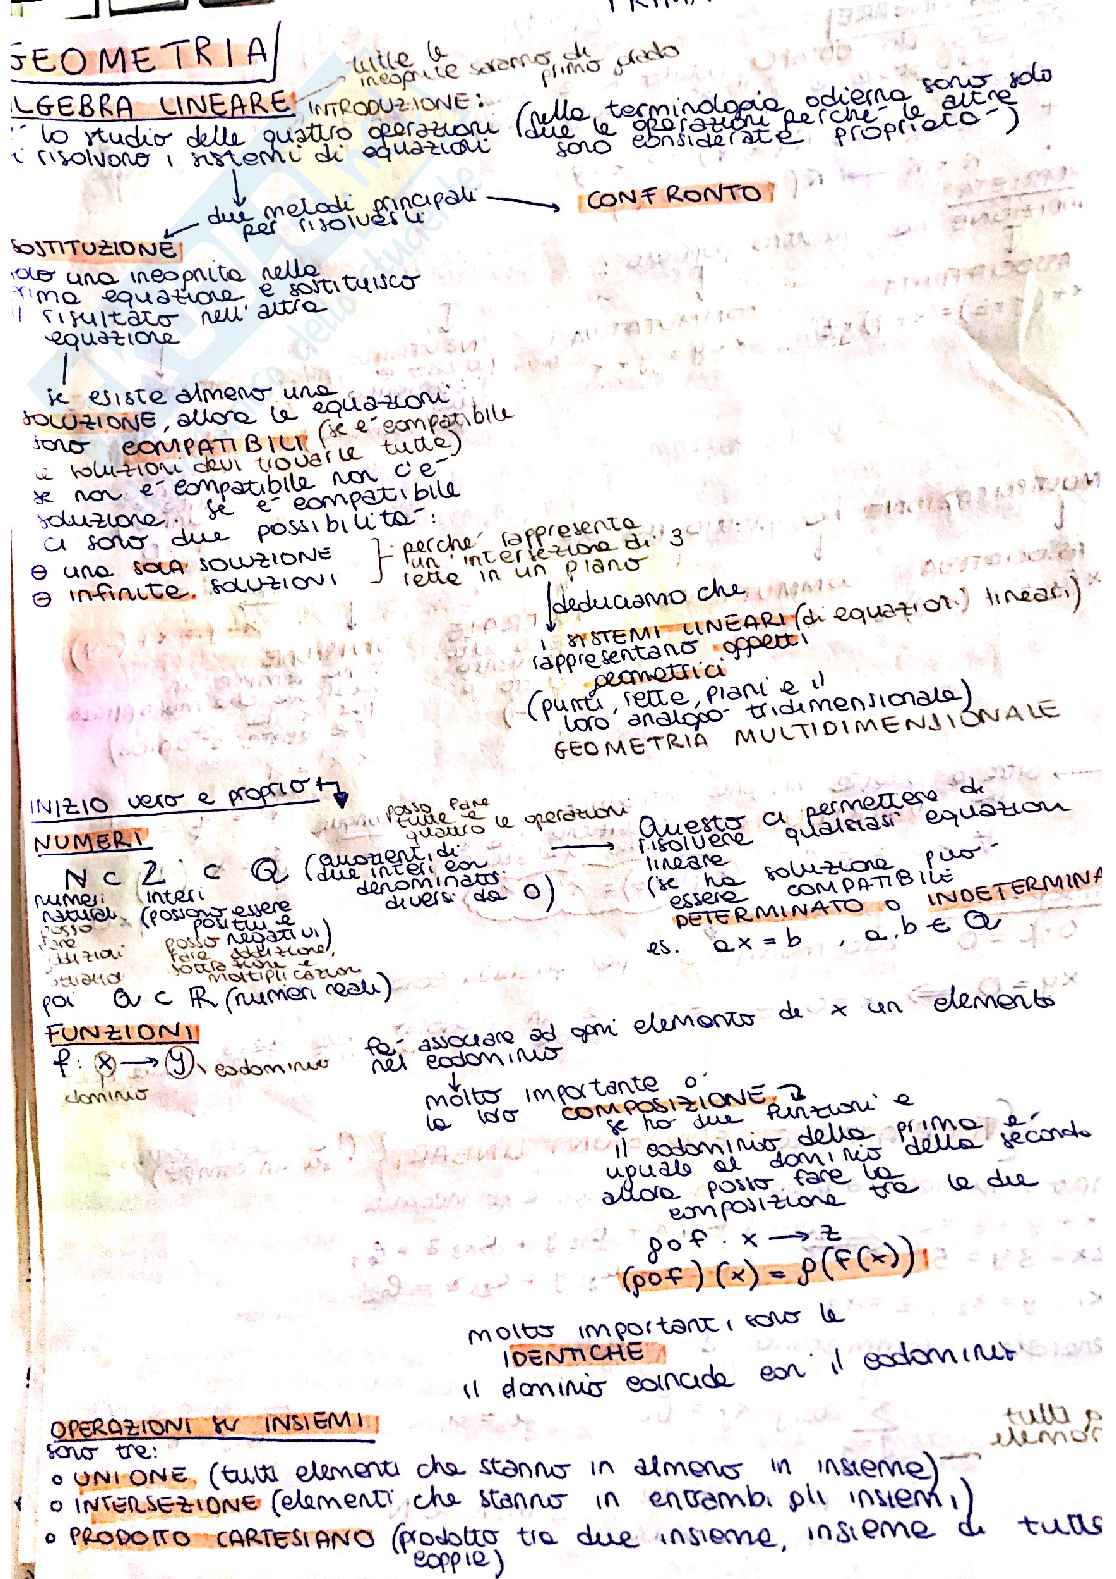 PRIMA
GEOMETRIA
ALGEBRA LINEARE
tutte le
incognite saranno di
primo grado
INTRODUZIONE:
lo studio delle quattro operazioni (nella terminologia odierna sono solo
due le operazioni perché le altre
sono considerate proprietà)
si risolvono i sistemi di equazioni
due metodi principali
per risolverli
CONFRONTO
SOSTITUZIONE
una incognita nella
prima equazione e sostituisco
il risultato nell'altra
equazione
se esiste almeno una
SOLUZIONE, allora le equazioni
sono COMPATIBILI (se è compatibile
le soluzioni devi trovarle tutte)
se non è compatibile non c'è
soluzione. se è compatibile
ci sono due possibilità:
⊖ una SOLA SOLUZIONE
⊖ infinite SOLUZIONI
perché rappresenta
un'intersezione di 3
rette in un piano
deduciamo che
i SISTEMI LINEARI (di equazioni lineari)
rappresentano oggetti
geometrici
(punti, rette, piani e il
loro analogo tridimensionale)
GEOMETRIA MULTIDIMENSIONALE
INIZIO vero e proprio
NUMERI
posso fare
tutte e
quattro le operazioni
N ⊂ Z ⊂ Q (quozienti di
due interi con
denominatori
diversi da 0)
numeri
naturali
posso
fare
interi
(possono essere
positivi e
negativi)
posso
fare addizione,
sottrazione e
moltiplicazion
Questo ci permettere di
risolvere qualsiasi equazioni
lineare
(se ha soluzione può
essere COMPATIBILE
DETERMINATO o INDETERMINA
es. ax = b , a, b ∈ Q
poi Q ⊂ R (numeri reali)
FUNZIONI
f: x → y codominio
dominio
fa associare ad ogni elemento de x un elemento
nel codominio
molto importante è
la loro COMPOSIZIONE
se ho due funzioni e
il codominio della prima è
uguale al dominio della seconda
allora posso fare la
composizione tra le due
gof: x → z
(gof)(x) = g(f(x))
molto importanti sono le
IDENTICHE
il dominio coincide con il codominio
OPERAZIONI su INSIEMI
sono tre:
tutti g
elemen
o UNIONE (tutti elementi che stanno in almeno in insieme)
o INTERSEZIONE (elementi che stanno in entrambi gli insiemi)
o PRODOTTO CARTESIANO (prodotto tra due insieme, insieme di tutte
coppie)